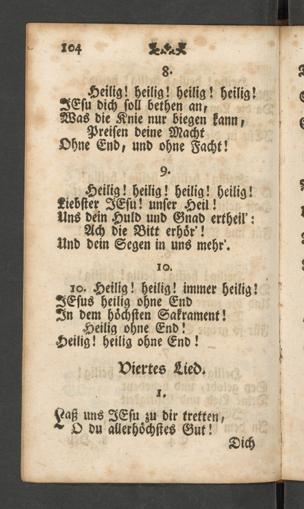 104
8.
Heilig! heilig! heilig! heilig!
JEsu dich soll bethen an,
Was die Knie nur biegen kann,
Preisen deine Macht
Ohne End, und ohne Facht!
9.
Heilig! heilig! heilig! heilig!
Liebster JEsu! unser Heil!
Uns dein Huld und Gnad ertheil':
Ach die Bitt erhör'!
Und dein Segen in uns mehr'.
10.
10. Heilig! heilig! immer heilig!
JEsus heilig ohne End
In dem höchsten Sakrament!
Heilig ohne End!
Heilig! heilig ohne End!
Viertes Lied.
1.
Laß uns JEsu zu dir tretten,
O du allerhöchstes Gut!
Dich